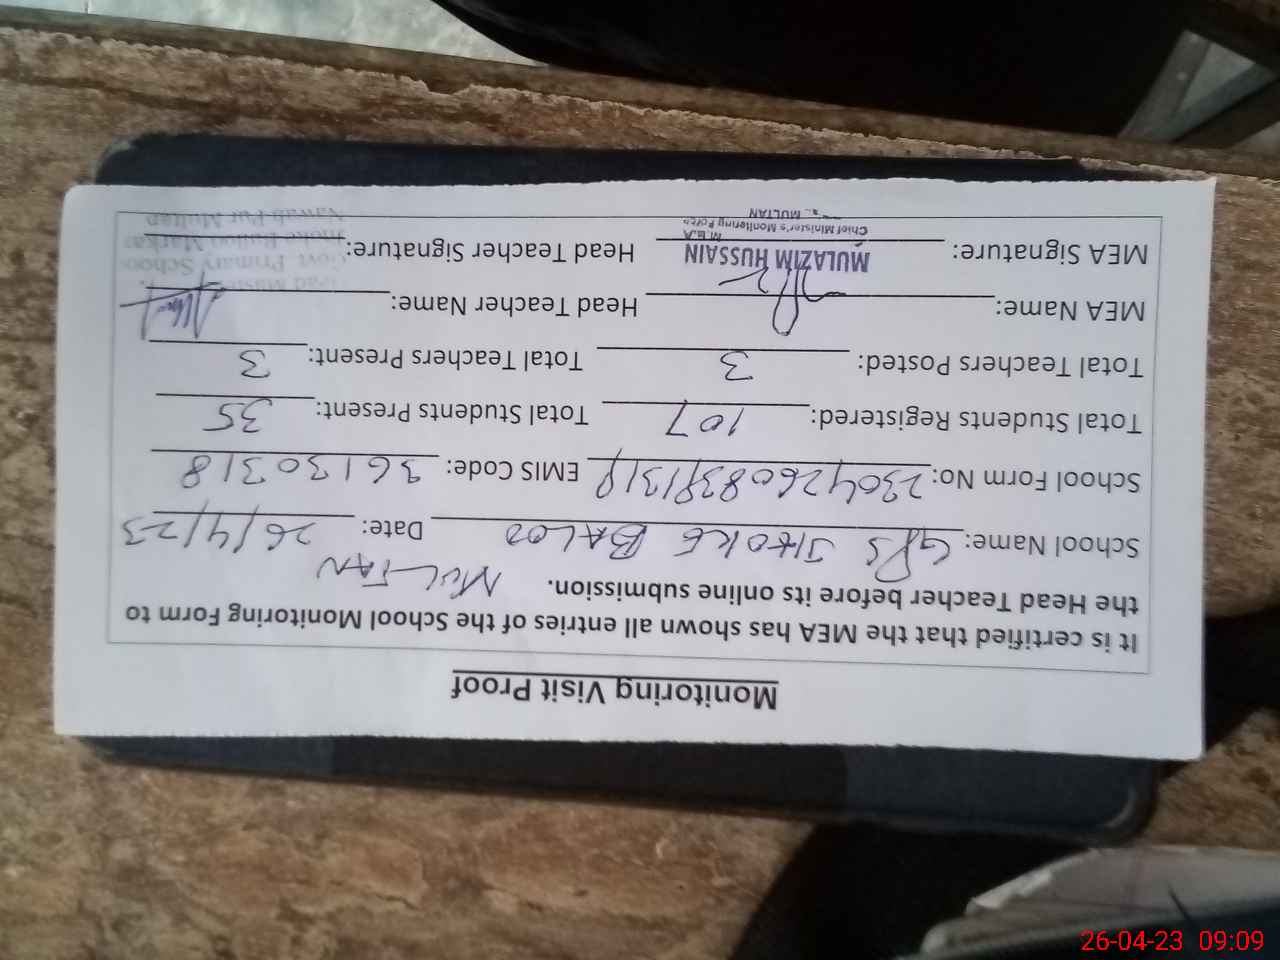 Monitoring Visit Proof
It is certified that the MEA has shown all entries of the School Monitoring Form to
the Head Teacher before its online submission. MULTAN
School Name: GPS JHOKE BALOO Date: 26/4/23
School Form No: EMIS Code: 36130318
Total Students Registered: 107 Total Students Present: 35
Total Teachers Posted: 3 Total Teachers Present: 3
MEA Name: Head Teacher Name:
MEA Signature: Head Teacher Signature:
MULAZIM HUSSAIN
M.E.A
Chief Minister's Monitoring Force
MULTAN
Govt Primary School
Nawab Pur Multan
26-04-23 09:09